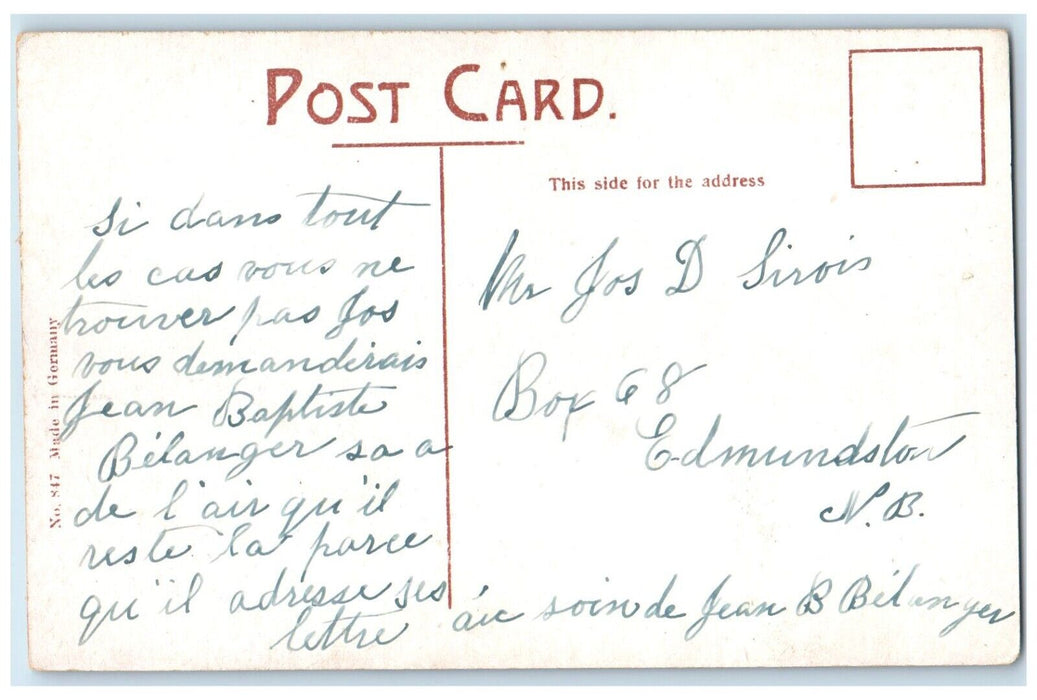 POST CARD.
This side for the address
No. 847 Made in Germany
Si dans tout
les cas vous ne
trouver pas Jos
vous demanderais
Jean Baptiste
Bélanger sa a
de l'air qu'il
reste la parce
qu'il adresse ses
lettre aic soin de Jean B Bélanger
Mr Jos D Sirois
Box 68
Edmundston
N.B.